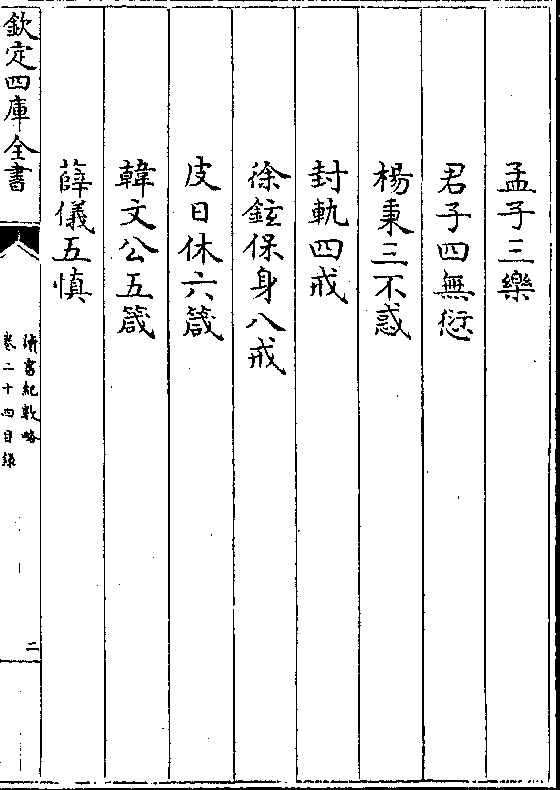 孟子三樂
君子四無愆
楊秉三不惑
封軌四戒
徐鉉保身八戒
皮日休六箴
韓文公五箴
薛儀五慎
欽定四庫全書
讀書紀數略
卷二十四目錄
二